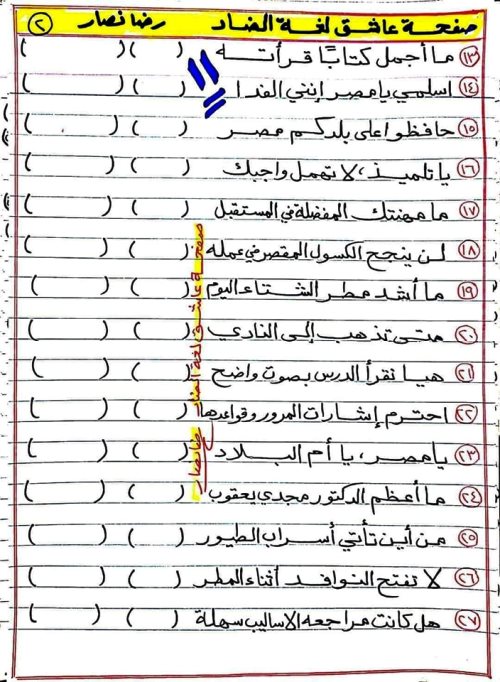 صفحة عاشق لغة الضاد رضا نصار (٢)
(١٣) ما أجمل كتابًا قرأته ( ) ( )
(١٤) اسلمي يا مصر إنني الفدا ( ) ( )
(١٥) حافظوا على بلدكم مصر ( ) ( )
(١٦) يا تلميذ، لا تهمل واجبك ( ) ( )
(١٧) ما مهنتك المفضلة في المستقبل ( ) ( )
(١٨) لن ينجح الكسول المقصر في عمله ( ) ( )
(١٩) ما أشد مطر الشتاء اليوم ( ) ( )
(٢٠) متى تذهب إلى النادي ( ) ( )
(٢١) هيا نقرأ الدرس بصوت واضح ( ) ( )
(٢٢) احترم إشارات المرور وقواعدها ( ) ( )
(٢٣) يا مصر، يا أم البلاد ( ) ( )
(٢٤) ما أعظم الدكتور مجدي يعقوب ( ) ( )
(٢٥) من أين تأتي أسراب الطيور ( ) ( )
(٢٦) لا تفتح النوافد أثناء المطر ( ) ( )
(٢٧) هل كانت مراجعه الاساليب سهلة ( ) ( )
صفحة عاشق لغة الضاد رضا نصار